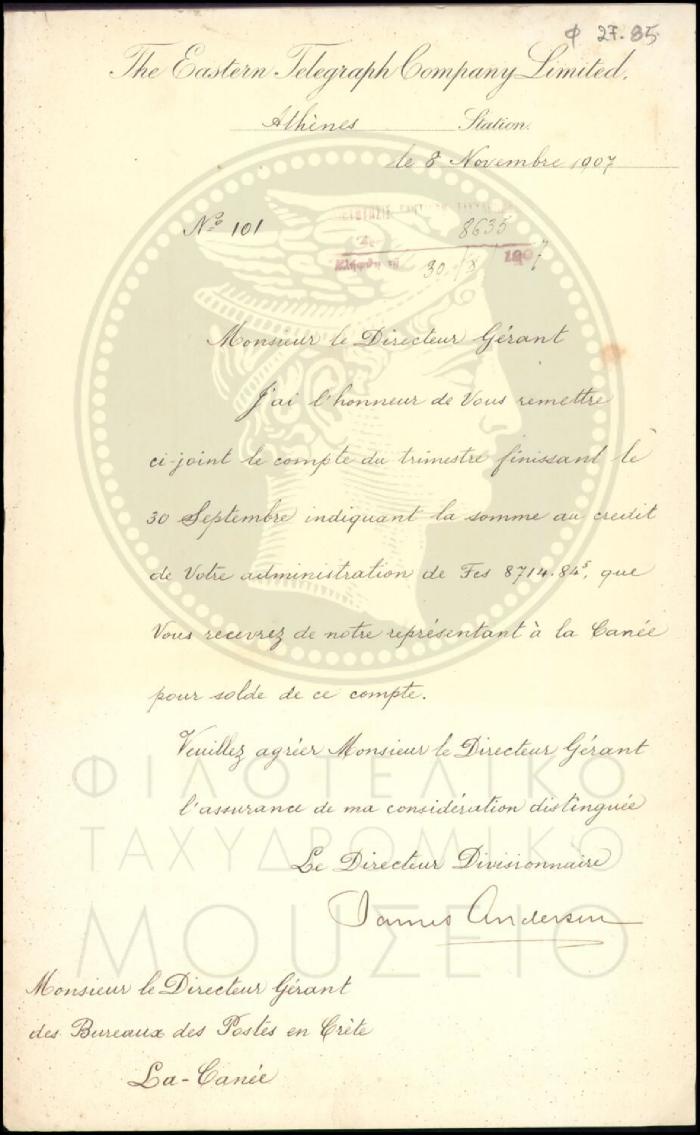 Φ 27.85
The Eastern Telegraph Company, Limited.
Athènes Station.
le 8 Novembre 1907
No 101
8635
30 / X 1907
Monsieur le Directeur Gérant
J'ai l'honneur de Vous remettre
ci-joint le compte du trimestre finissant le
30 Septembre indiquant la somme au credit
de Votre administration de Fcs 8714.84⁵, que
Vous recevrez de notre représentant à la Canée
pour solde de ce compte.
Veuillez agréer Monsieur le Directeur Gérant
l'assurance de ma considération distinguée
Le Directeur Divisionnaire
James Anderson
Monsieur le Directeur Gérant
des Bureaux des Postes en Crète
La-Canée
ΦΙΛΟΤΕΛΙΚΟ
ΤΑΧΥΔΡΟΜΙΚΟ
ΜΟΥΣΕΙΟ